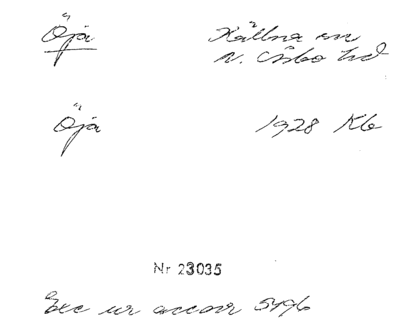 Öja Källna sn
N. Åsbo hd
Öja 1928 Kb
Nr 23035
Exc ur accnr 5496